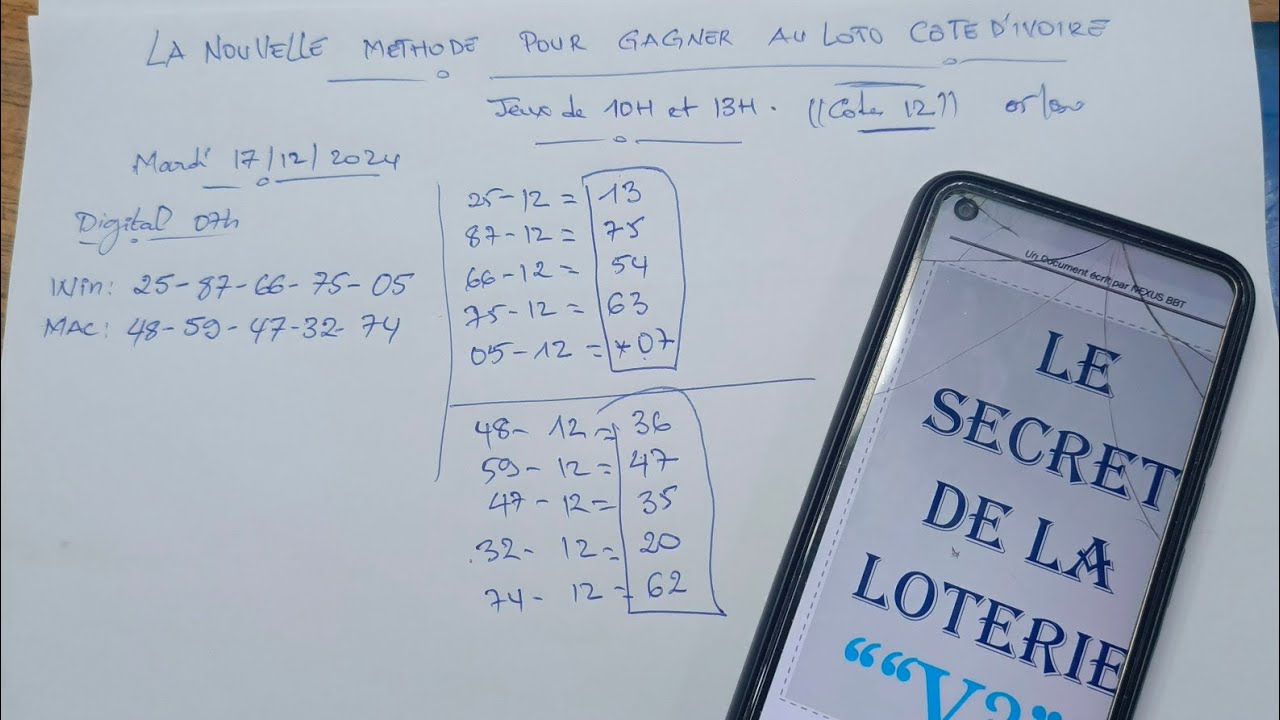 LA NOUVELLE METHODE POUR GAGNER AU LOTO COTE D'IVOIRE
Jeux de 10H et 13H. ((Code 12))
Mardi 17/12/2024
Digital 07h
Win: 25-87-66-75-05
MAC: 48-59-47-32-74
25-12= 13
87-12= 75
66-12= 54
75-12= 63
05-12= *07
48-12= 36
59-12= 47
47-12= 35
32-12= 20
74-12= 62
Un Document écrit par NEXUS BBT
LE
SECRET
DE LA
LOTERIE